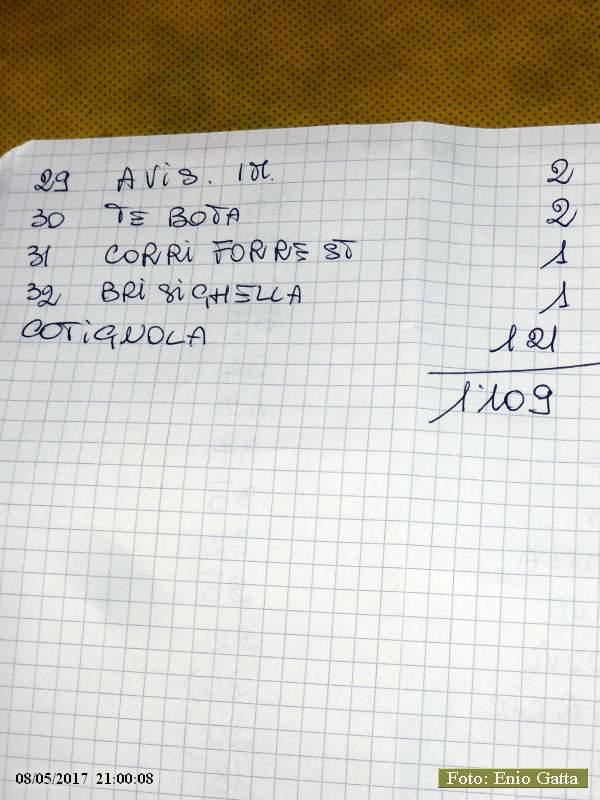 29 AVIS. IM. 2
30 TE BOTA 2
31 CORRI FORREST 1
32 BRISIGHELLA 1
COTIGNOLA 121
1'109
08/05/2017 21:00:08
Foto: Enio Gatta